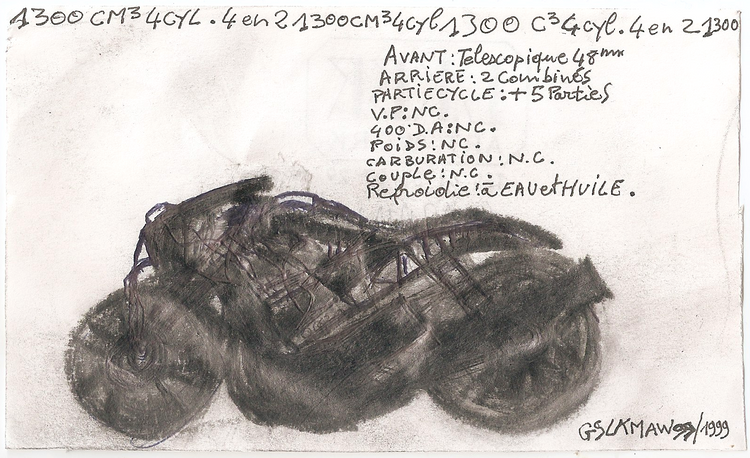 1300 CM³ 4CYL. 4 en 2 1300CM³4Cyl 1300 C³ 4cyl. 4 en 2 1300
AVANT: Telescopique 48mm
ARRIERE: 2 Combinés
PARTIECYCLE: + 5 Parties
V.P: NC.
400 D.A: NC.
POIDS: NC.
CARBURATION: N.C.
COUPLE: N.C.
Refroidie: à EAU et HUILE.
GSLKMAW99/1999